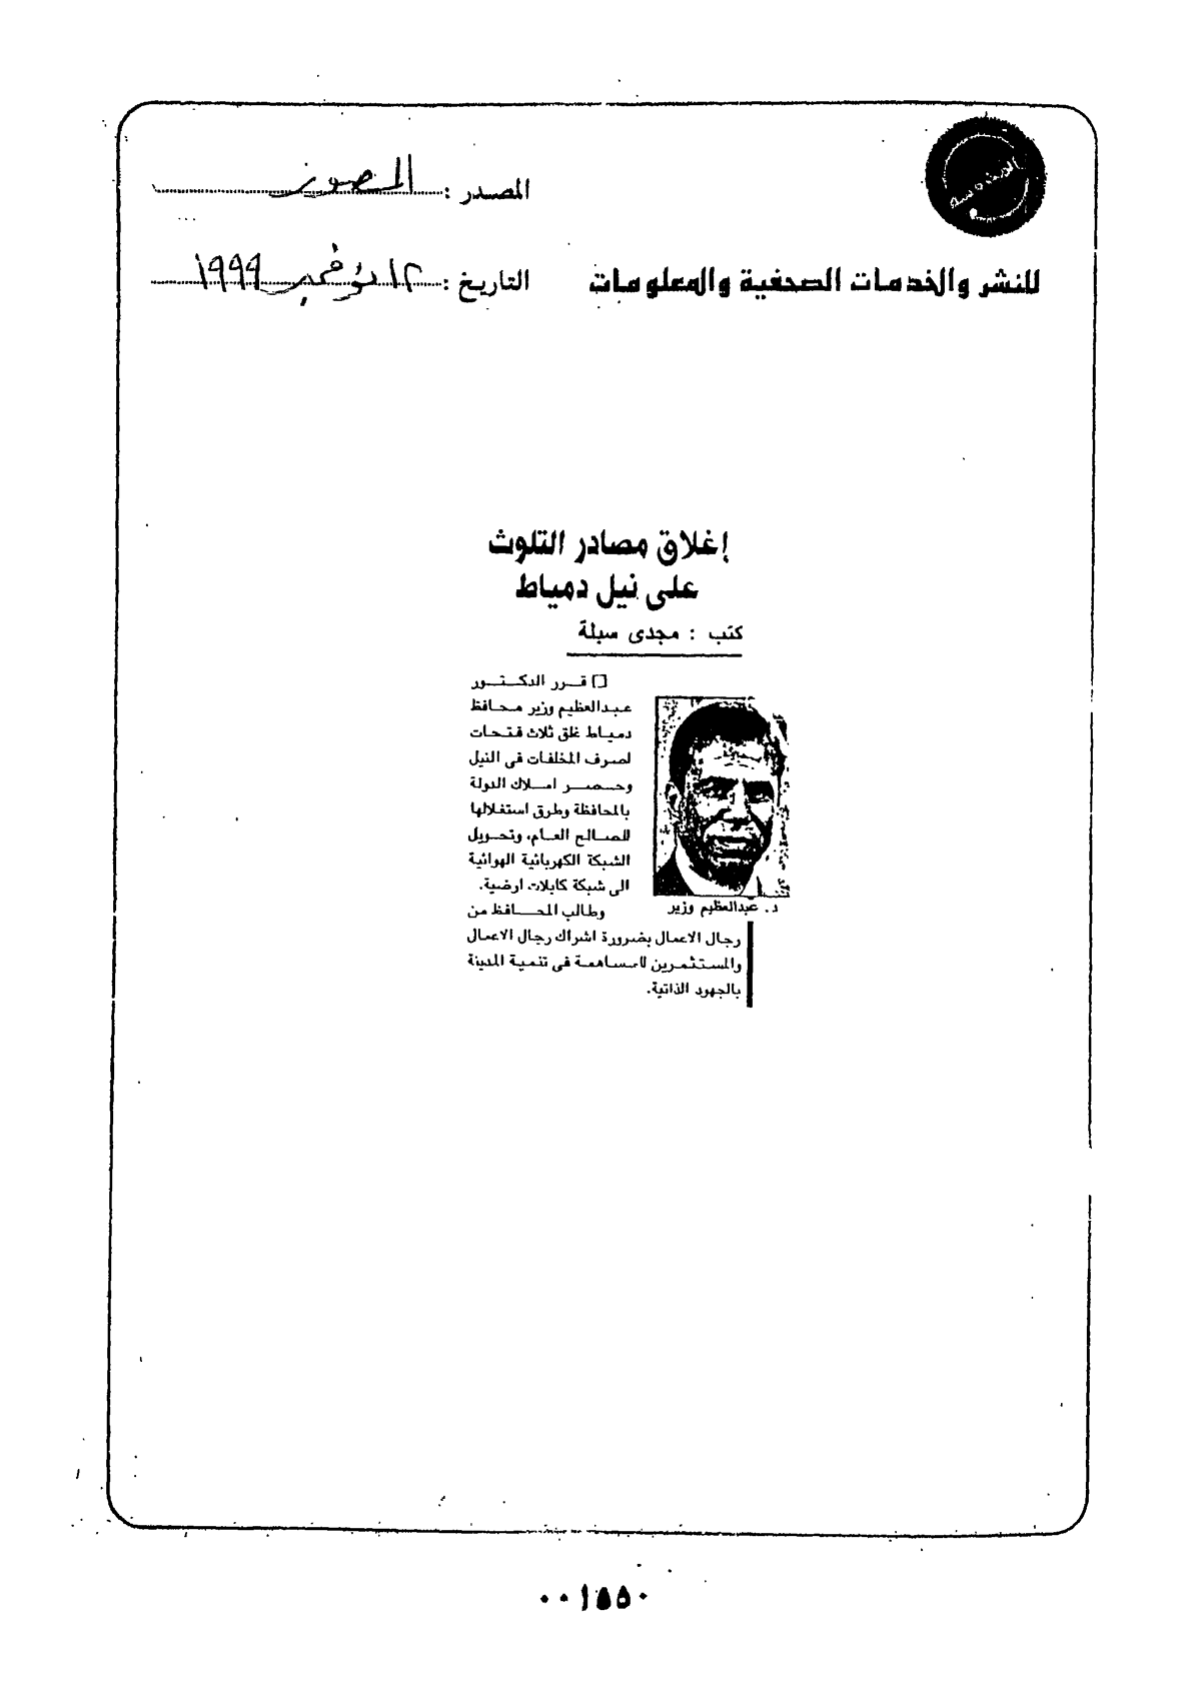 المصدر : المصور
للنشر والخدمات الصحفية والمعلومات
التاريخ : ١٢ نوفمبر ١٩٩٩
إغلاق مصادر التلوث
على نيل دمياط
كتب : مجدى سبلة
قرر الدكتور
عبدالعظيم وزير محافظ
دمياط غلق ثلاث فتحات
لصرف المخلفات فى النيل
وحصر املاك الدولة
بالمحافظة وطرق استغلالها
للصالح العام، وتحويل
الشبكة الكهربائية الهوائية
الى شبكة كابلات ارضية.
د. عبدالعظيم وزير
وطالب المحافظ من
رجال الاعمال بضرورة اشراك رجال الاعمال
والمستثمرين للمساهمة فى تنمية المدينة
بالجهود الذاتية.
٠٠١٥٥٠